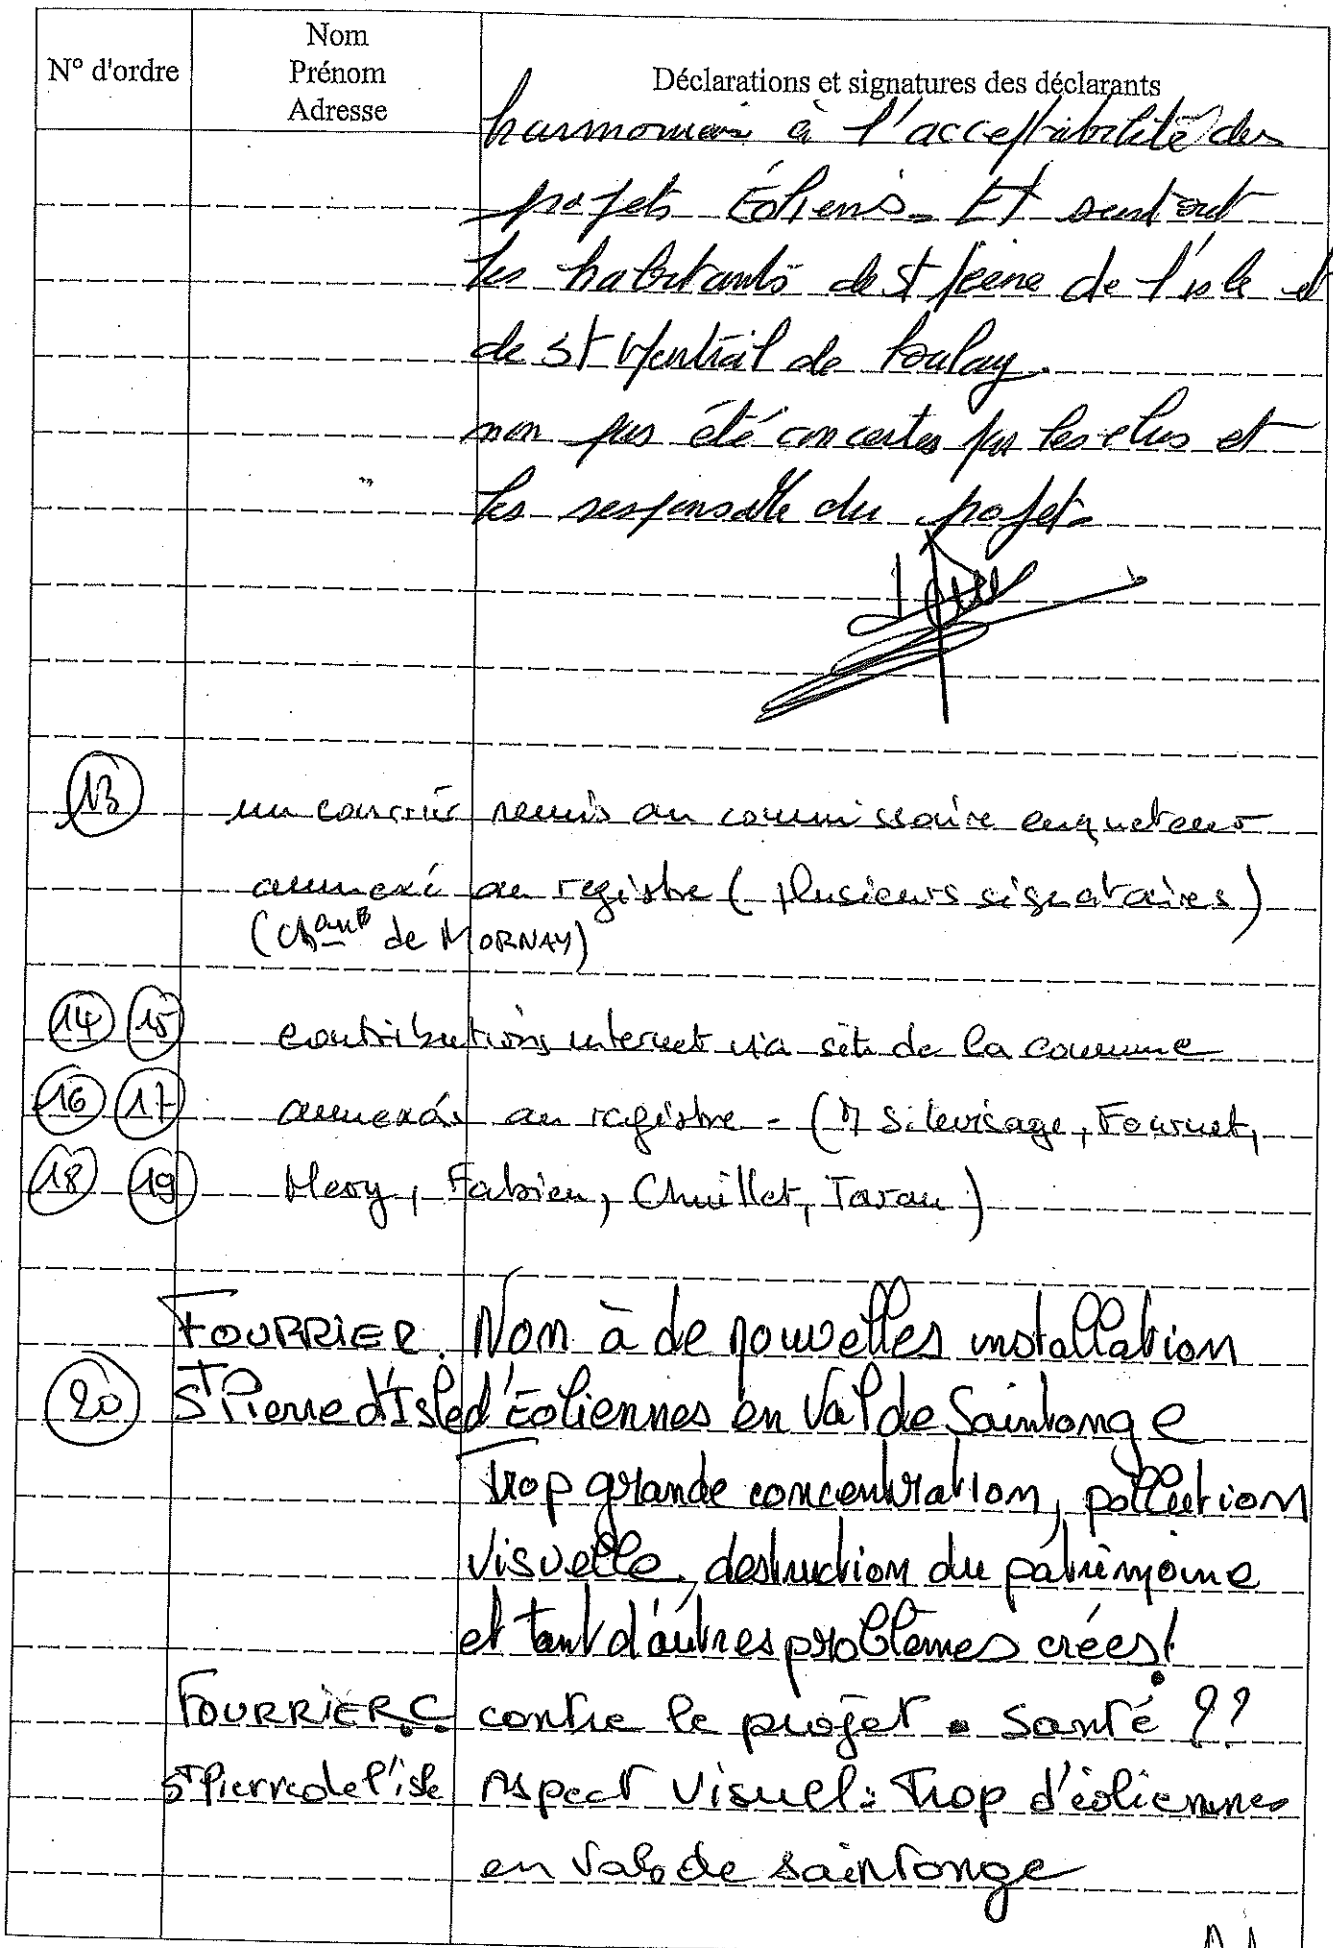 N° d'ordre
Nom
Prénom
Adresse
Déclarations et signatures des déclarants
à l'acceptabilité des
projets Éoliens. Et surtout
les habitants de st pierre de l'isle et
de st de Loulay.
non pas été concertes par les elus et
les responsable du projet.
13 un courrier remis au commissaire enqueteur
annexé au registre (plusieurs signataires)
(de MORNAY)
14 15 contributions internet via site de la commune
16 17 annexés au registre - (M Silevisage, Fournet,
18 19 Mery, Fabien, Chuillet, Taran)
FOURRIER. Non à de nouvelles installation
20 St Pierre d'Isle d'Éoliennes en Val de Saintonge
Trop grande concentration, pollution
visuelle, destruction du patrimoine
et tant d'autres problèmes créés!
FOURRIER.C. contre le projet . Santé ??
St Pierre de l'isle Aspect visuel : Trop d'éoliennes
en Vals de saintonge